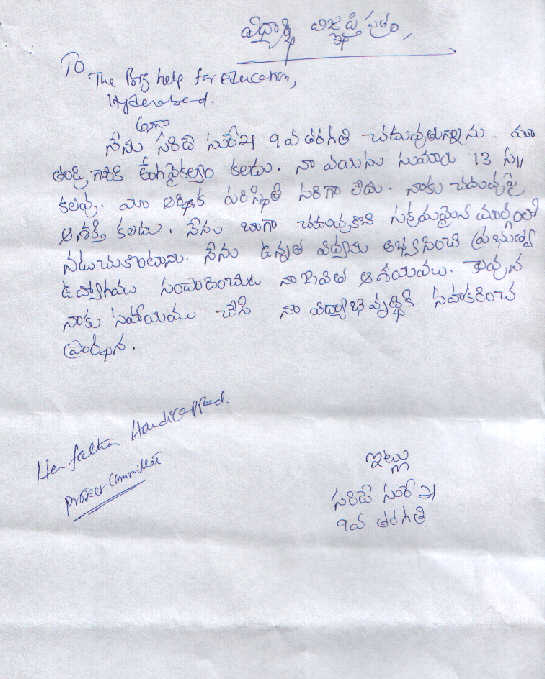 విద్యార్థి విజ్ఞప్తి పత్రం,
To
The Big help for Education,
Hyderabad.
అయ్యా
నేను సరిదె సురేష్ 9వ తరగతి చదువుతున్నాను. మా
తండ్రి గారికి అంగవైకల్యం కలదు. నా వయసు సుమారు 13 సం॥
కలవు. మా ఆర్థిక పరిస్థితి సరిగా లేదు. నాకు చదువుపై
ఆసక్తి కలదు. నేను బాగా చదువుకొని సక్రమమైన మార్గంలో
నడుచుకుంటాను. నేను ఉన్నత విద్యను అభ్యసించి ప్రభుత్వ
ఉద్యోగము సంపాదించుట నా జీవిత ఆశయము. కావున
నాకు సహాయము చేసి నా విద్యాభివృద్ధికి సహకరించ
ప్రార్థన.
Her father Handicapped.
Project Committee
ఇట్లు
సరిదె సురేష్
9వ తరగతి